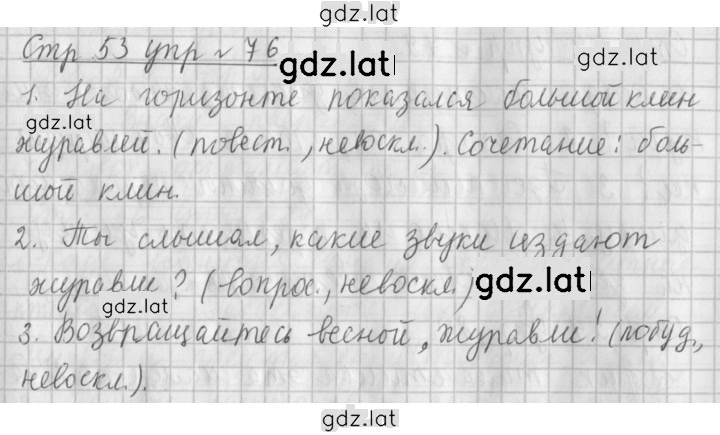 gdz.lat
Стр 53 упр № 76
gdz.lat
gdz.lat
1. На горизонте показался большой клин
gdz.lat
журавлей. (повест., невоскл.). Сочетание: боль-
шой клин.
2. Ты слышал, какие звуки издают
журавли? (вопрос., невоскл.)
gdz.lat
gdz.lat
3. Возвращайтесь весной, журавли! (побуд.,
невоскл.).
gdz.lat